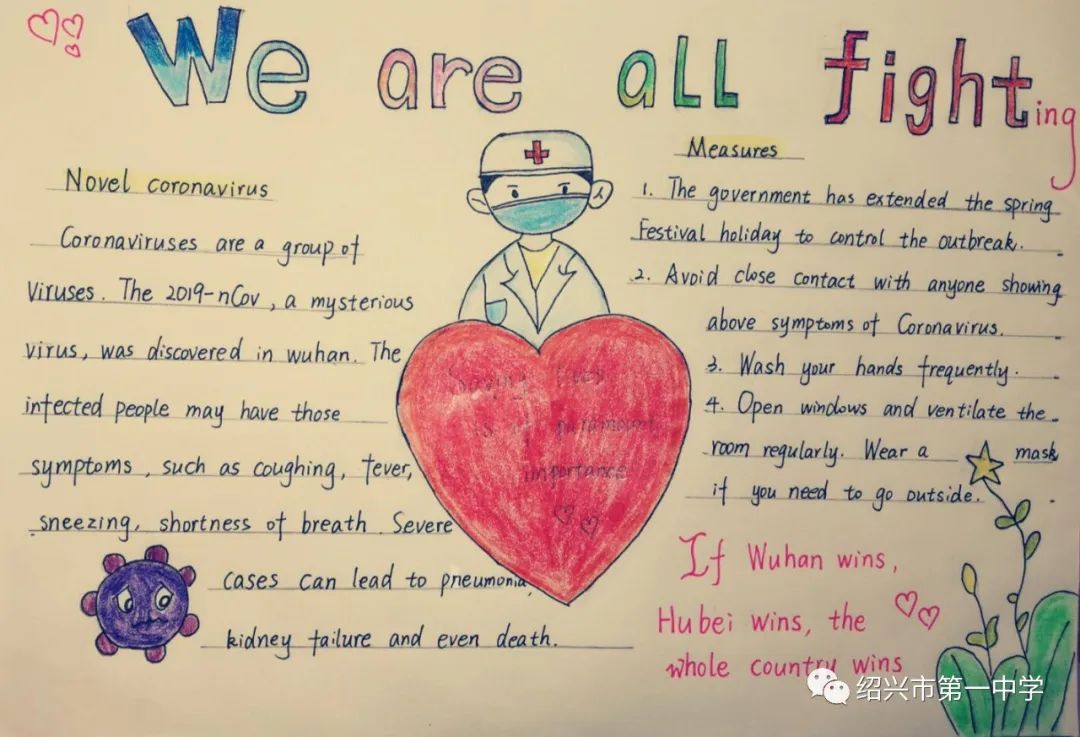 We are all fighting
Novel coronavirus
Coronaviruses are a group of
Viruses. The 2019-nCov, a mysterious
virus, was discovered in wuhan. The
infected people may have those
symptoms, such as coughing, fever,
sneezing, shortness of breath. Severe
cases can lead to pneumonia,
kidney failure and even death.
Saving lives
is of paramount
importance
Measures
1. The government has extended the spring
Festival holiday to control the outbreak.
2. Avoid close contact with anyone showing
above symptoms of Coronavirus.
3. Wash your hands frequently.
4. Open windows and ventilate the
room regularly. Wear a mask
if you need to go outside.
If Wuhan wins,
Hubei wins, the
whole country wins
绍兴市第一中学